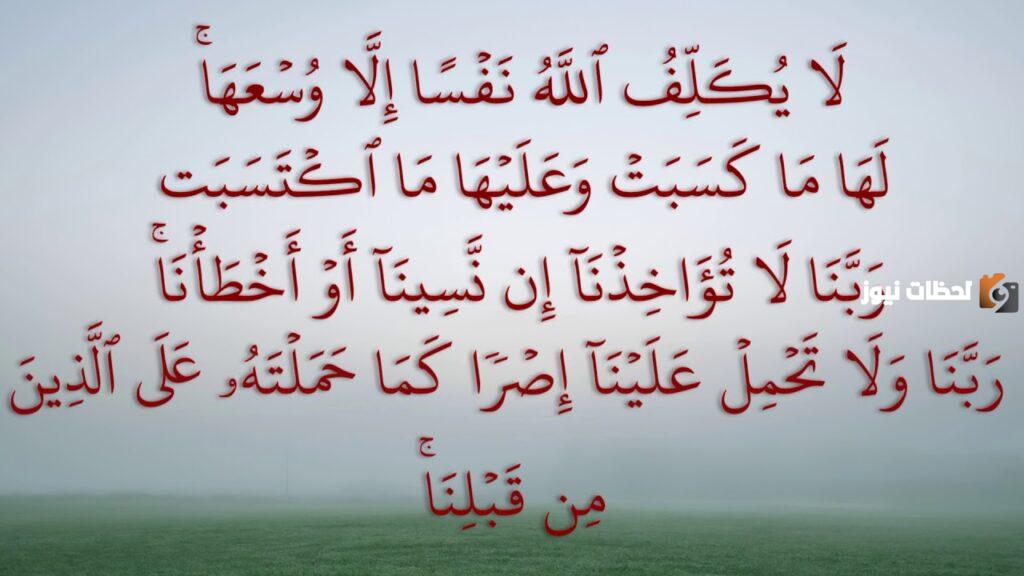 لَا يُكَلِّفُ ٱللَّهُ نَفْسًا إِلَّا وُسْعَهَاۚ
لَهَا مَا كَسَبَتْ وَعَلَيْهَا مَا ٱكْتَسَبَت
رَبَّنَا لَا تُؤَاخِذْنَآ إِن نَّسِينَآ أَوْ أَخْطَأْنَاۚ
لحظات نيوز
رَبَّنَا وَلَا تَحْمِلْ عَلَيْنَآ إِصْرًا كَمَا حَمَلْتَهُۥ عَلَى ٱلَّذِينَ
مِن قَبْلِنَاۚ